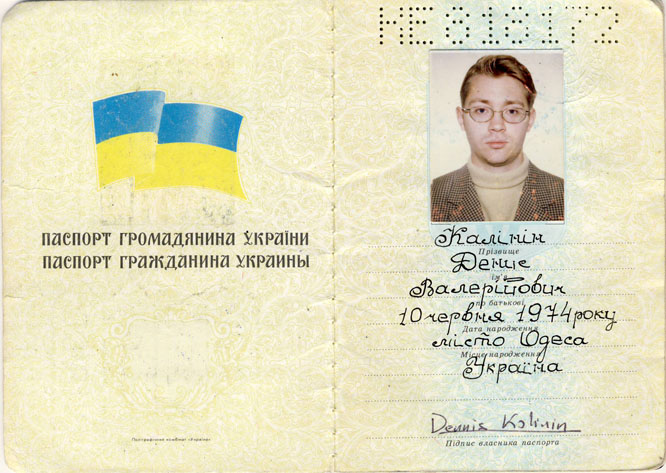 ПАСПОРТ ГРОМАДЯНИНА УКРАЇНИ
ПАСПОРТ ГРАЖДАНИНА УКРАИНЫ
Поліграфічний комбінат «Україна»
НЕ818172
Калінін
Прізвище
Деніс
ім'я
Валерійович
по батькові
10 червня 1974 року
Дата народження
місто Одеса
Місце народження
Україна
Dennis Kalinin
Підпис власника паспорта